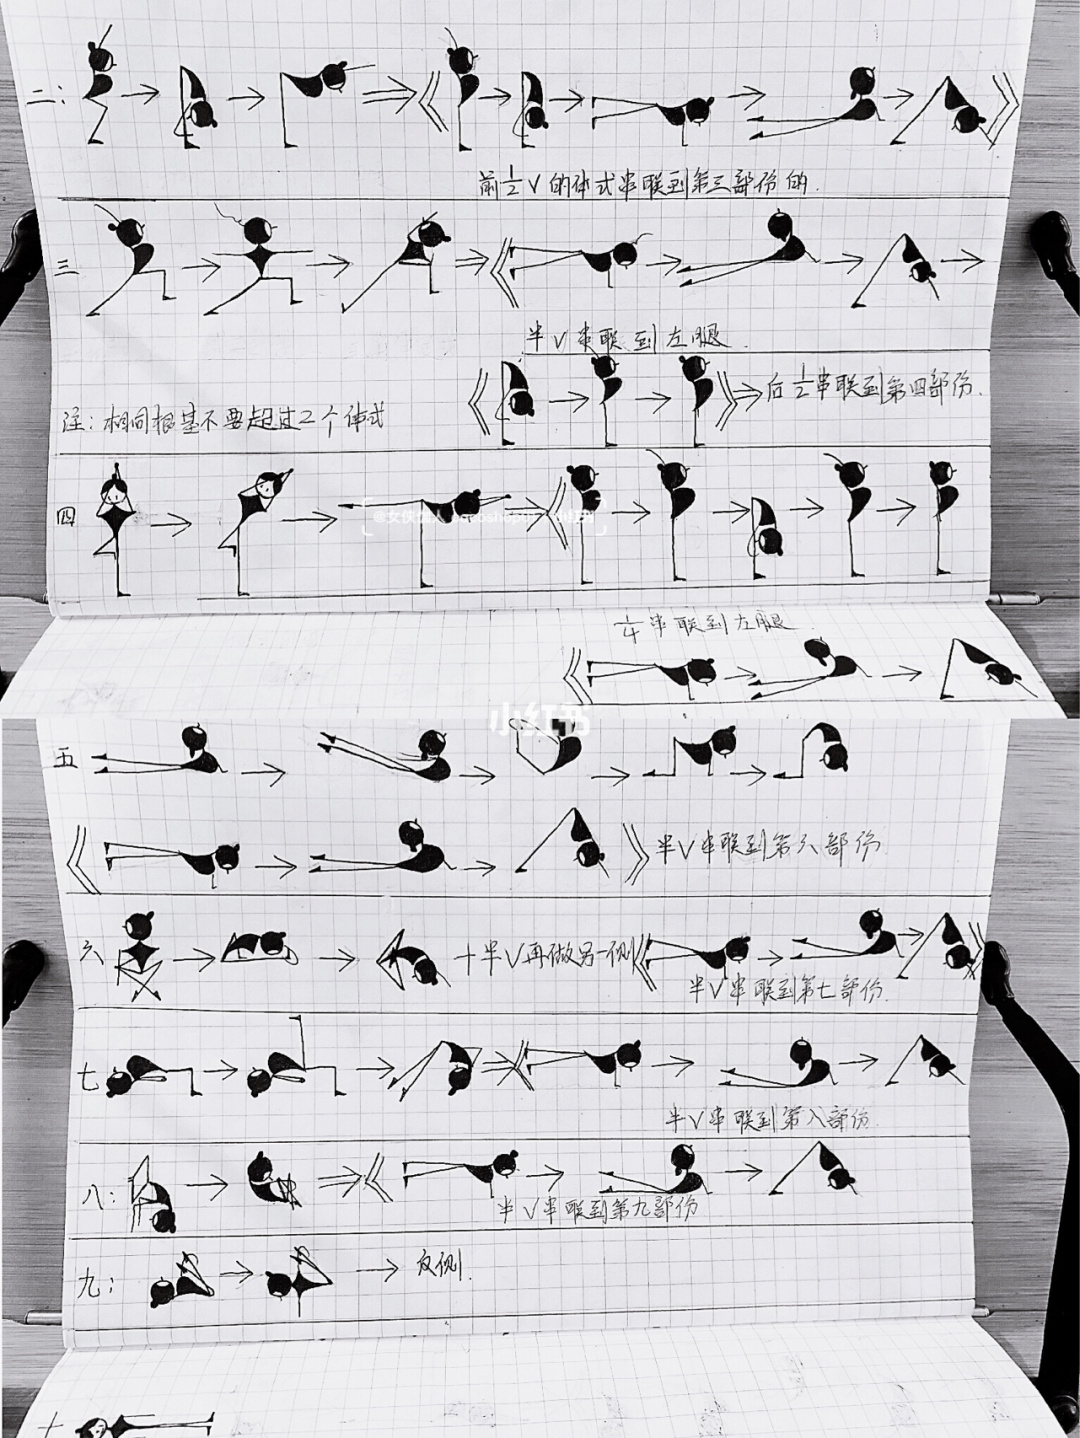 二：
前1/2V的体式串联到第三部份的.
三
半V串联到左腿.
后1/2串联到第四部份.
注：相同根基不要超过2个体式
四
1/4串联到左腿.
小红书
五
半V串联到第六部份
六
+半V再做另一侧
半V串联到第七部份.
七
半V串联到第八部份.
八：
半V串联到第九部份
九：
→反侧.
十